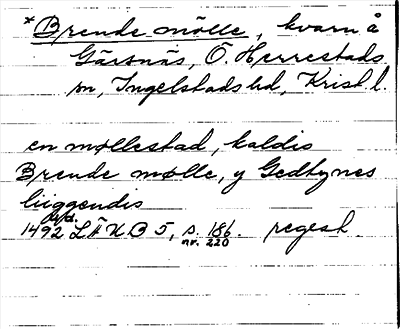 *Brende mölle, kvarn å
Gärsnäs, Ö. Herrestads
sn, Ingelstads hd, Krist. l.
en møllestad, kaldis
Brende mølle, y Gedtynes
liiggendis
1492 LÄUB 5, s. 186. regest.
nr. 220